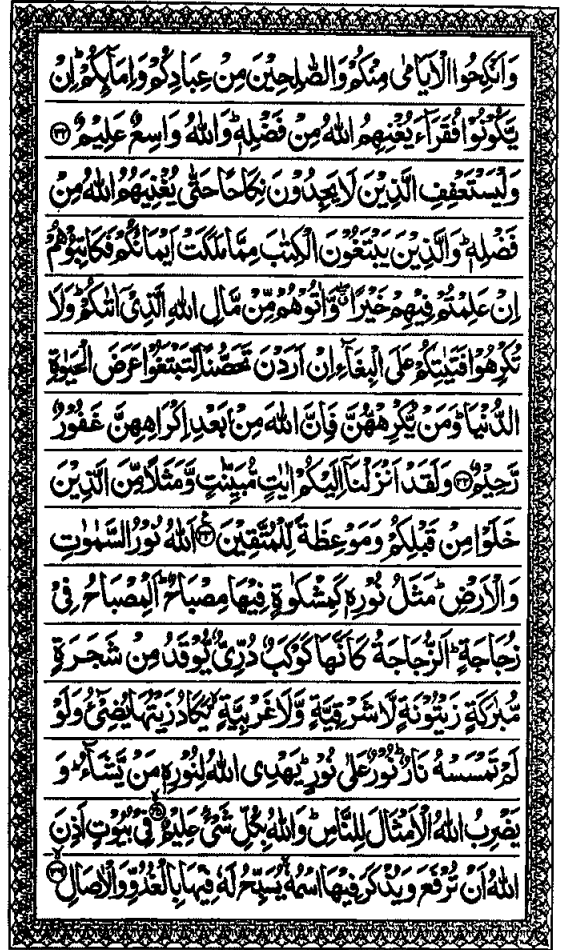 وَاَنْكِحُوا الْاَيَامٰى مِنْكُمْ وَالصّٰلِحِيْنَ مِنْ عِبَادِكُمْ وَاِمَآئِكُمْ ؕ اِنْ
يَّكُوْنُوْا فُقَرَآءَ يُغْنِهِمُ اللّٰهُ مِنْ فَضْلِهٖ ؕ وَاللّٰهُ وَاسِعٌ عَلِيْمٌ ﴿۳۲﴾
وَلْيَسْتَعْفِفِ الَّذِيْنَ لَا يَجِدُوْنَ نِكَاحًا حَتّٰى يُغْنِيَهُمُ اللّٰهُ مِنْ
فَضْلِهٖ ؕ وَالَّذِيْنَ يَبْتَغُوْنَ الْكِتٰبَ مِمَّا مَلَكَتْ اَيْمَانُكُمْ فَكَاتِبُوْهُمْ
اِنْ عَلِمْتُمْ فِيْهِمْ خَيْرًا ۖ وَّاٰتُوْهُمْ مِّنْ مَّالِ اللّٰهِ الَّذِيْۤ اٰتٰىكُمْ ؕ وَلَا
تُكْرِهُوْا فَتَيٰتِكُمْ عَلَى الْبِغَآءِ اِنْ اَرَدْنَ تَحَصُّنًا لِّتَبْتَغُوْا عَرَضَ الْحَيٰوةِ
الدُّنْيَا ؕ وَمَنْ يُّكْرِهْهُّنَّ فَاِنَّ اللّٰهَ مِنْۢ بَعْدِ اِكْرَاهِهِنَّ غَفُوْرٌ
رَّحِيْمٌ ﴿۳۳﴾ وَلَقَدْ اَنْزَلْنَاۤ اِلَيْكُمْ اٰيٰتٍ مُّبَيِّنٰتٍ وَّمَثَلًا مِّنَ الَّذِيْنَ
خَلَوْا مِنْ قَبْلِكُمْ وَمَوْعِظَةً لِّلْمُتَّقِيْنَ ﴿۳۴﴾ اَللّٰهُ نُوْرُ السَّمٰوٰتِ
وَالْاَرْضِ ؕ مَثَلُ نُوْرِهٖ كَمِشْكٰوةٍ فِيْهَا مِصْبَاحٌ ؕ اَلْمِصْبَاحُ فِيْ
زُجَاجَةٍ ؕ اَلزُّجَاجَةُ كَاَنَّهَا كَوْكَبٌ دُرِّيٌّ يُّوْقَدُ مِنْ شَجَرَةٍ
مُّبٰرَكَةٍ زَيْتُوْنَةٍ لَّا شَرْقِيَّةٍ وَّلَا غَرْبِيَّةٍ ۙ يَّكَادُ زَيْتُهَا يُضِيْٓءُ وَلَوْ
لَمْ تَمْسَسْهُ نَارٌ ؕ نُوْرٌ عَلٰى نُوْرٍ ؕ يَهْدِى اللّٰهُ لِنُوْرِهٖ مَنْ يَّشَآءُ ؕ وَ
يَضْرِبُ اللّٰهُ الْاَمْثَالَ لِلنَّاسِ ؕ وَاللّٰهُ بِكُلِّ شَىْءٍ عَلِيْمٌ ﴿۳۵﴾ فِيْ بُيُوْتٍ اَذِنَ
اللّٰهُ اَنْ تُرْفَعَ وَيُذْكَرَ فِيْهَا اسْمُهٗ ۙ يُسَبِّحُ لَهٗ فِيْهَا بِالْغُدُوِّ وَالْاٰصَالِ ﴿۳۶﴾